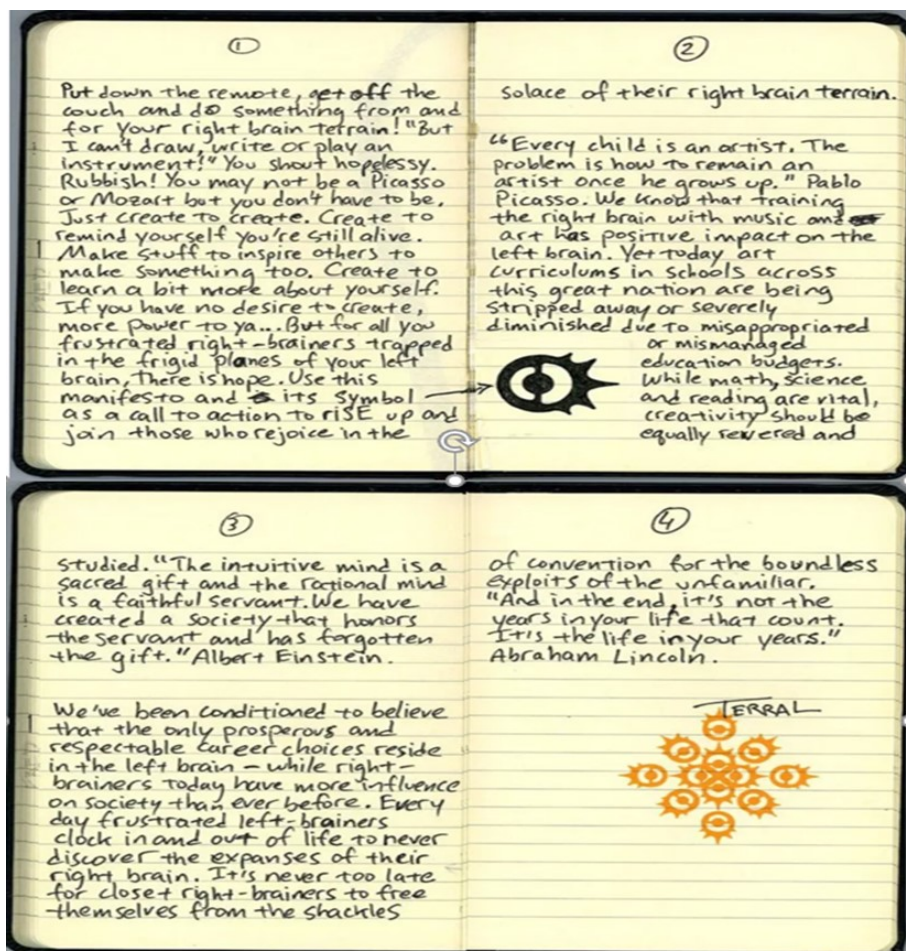 1
Put down the remote, get off the
couch and do something from and
for your right brain terrain! "But
I can't draw, write or play an
instrument!" You shout hopelessy.
Rubbish! You may not be a Picasso
or Mozart but you don't have to be.
Just create to create. Create to
remind yourself you're still alive.
Make stuff to inspire others to
make something too. Create to
learn a bit more about yourself.
If you have no desire to create,
more power to ya... But for all you
frustrated right-brainers trapped
in the frigid planes of your left
brain, there is hope. Use this
manifesto and its symbol
as a call to action to RISE up and
join those who rejoice in the
2
solace of their right brain terrain.
"Every child is an artist. The
problem is how to remain an
artist once he grows up." Pablo
Picasso. We know that training
the right brain with music and
art has positive impact on the
left brain. Yet today art
curriculums in schools across
this great nation are being
stripped away or severely
diminished due to misappropriated
or mismanaged
education budgets.
While math, science
and reading are vital,
creativity should be
equally revered and
3
studied. "The intuitive mind is a
sacred gift and the rational mind
is a faithful servant. We have
created a society that honors
the servant and has forgotten
the gift." Albert Einstein.
We've been conditioned to believe
that the only prosperous and
respectable career choices reside
in the left brain - while right-
brainers today have more influence
on society than ever before. Every
day frustrated left-brainers
clock in and out of life to never
discover the expanses of their
right brain. It's never too late
for closet right-brainers to free
themselves from the shackles
4
of convention for the boundless
exploits of the unfamiliar.
"And in the end, it's not the
years in your life that count.
It's the life in your years."
Abraham Lincoln.
TERRAL